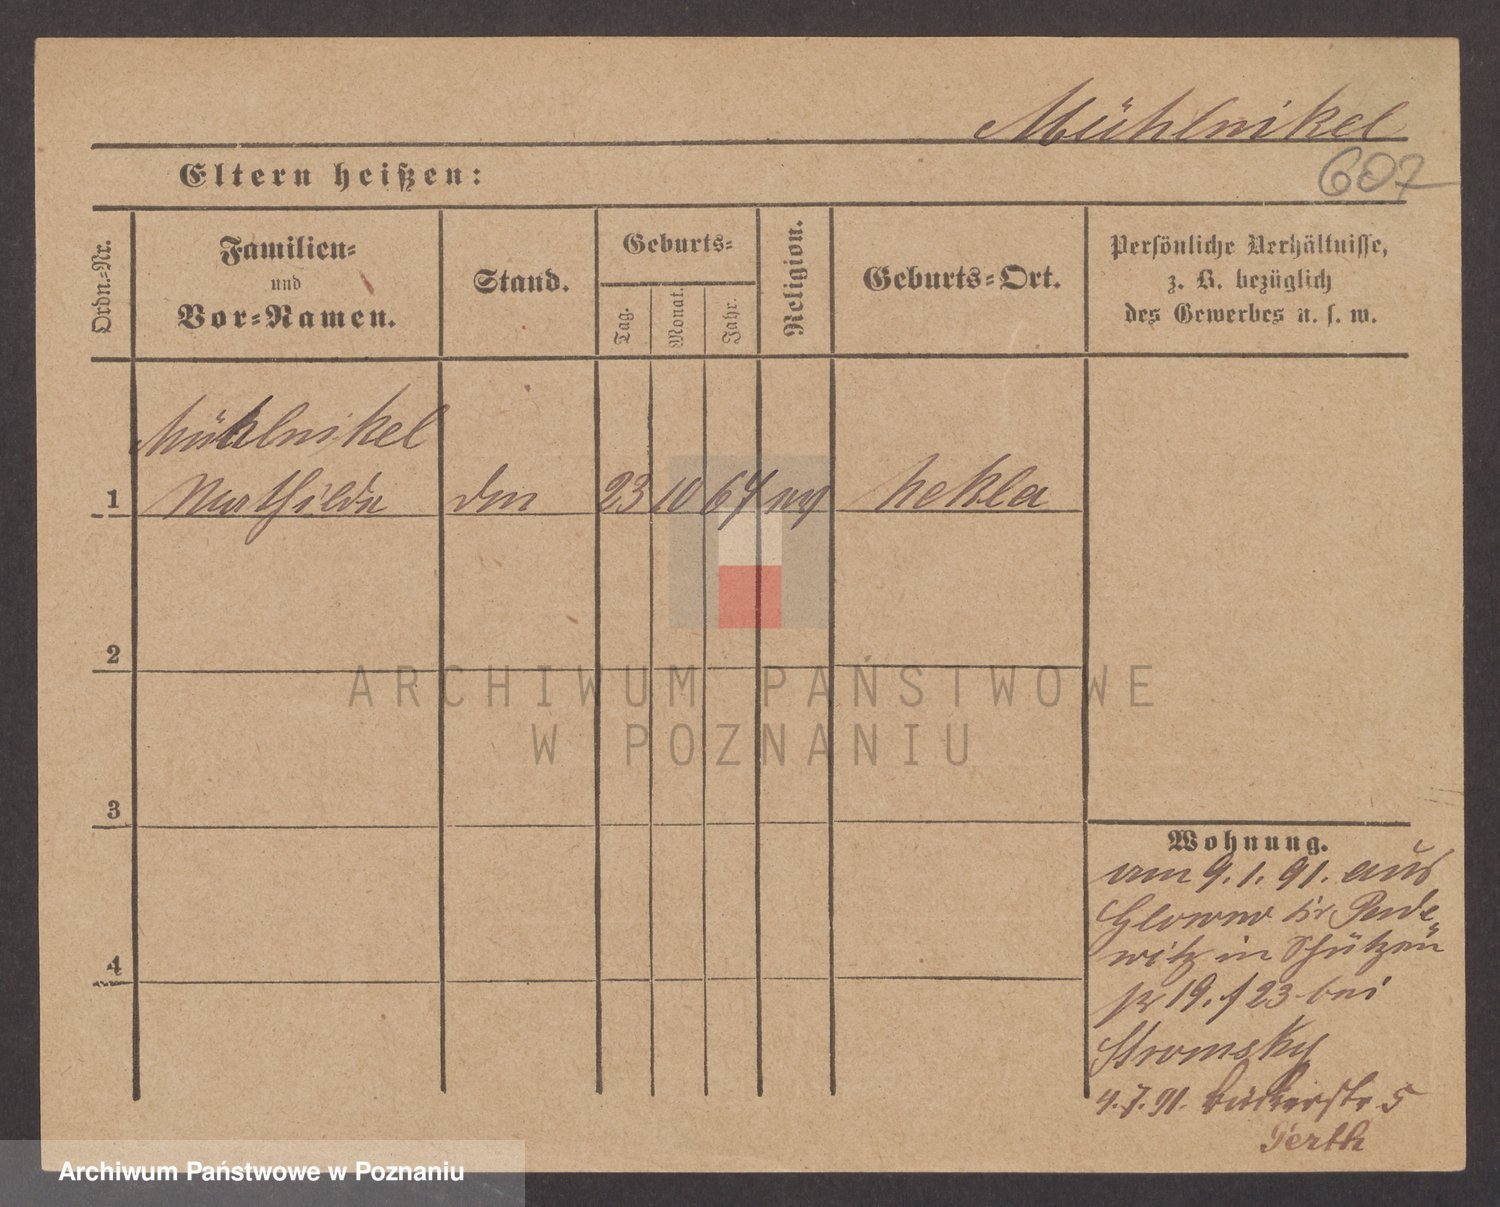 Mühlnikel
607
Eltern heißen:
Ordn.-Nr.
Familien-
und
Vor-Namen.
Stand.
Geburts-
Tag.
Monat.
Jahr.
Religion.
Geburts-Ort.
Persönliche Verhältnisse,
z. B. bezüglich
des Gewerbes u. s. w.
Mühlnikel
1 Mathilde 23 10 67 Hekla
2
3
4
Wohnung.
am 9.1.91. aus
Glowno Kr Pude
witz in Schützen
str 19. / 23 bei
Stromsky
4.7.91. Bäckerstr. 5
ARCHIWUM PAŃSTWOWE
W POZNANIU
Archiwum Państwowe w Poznaniu